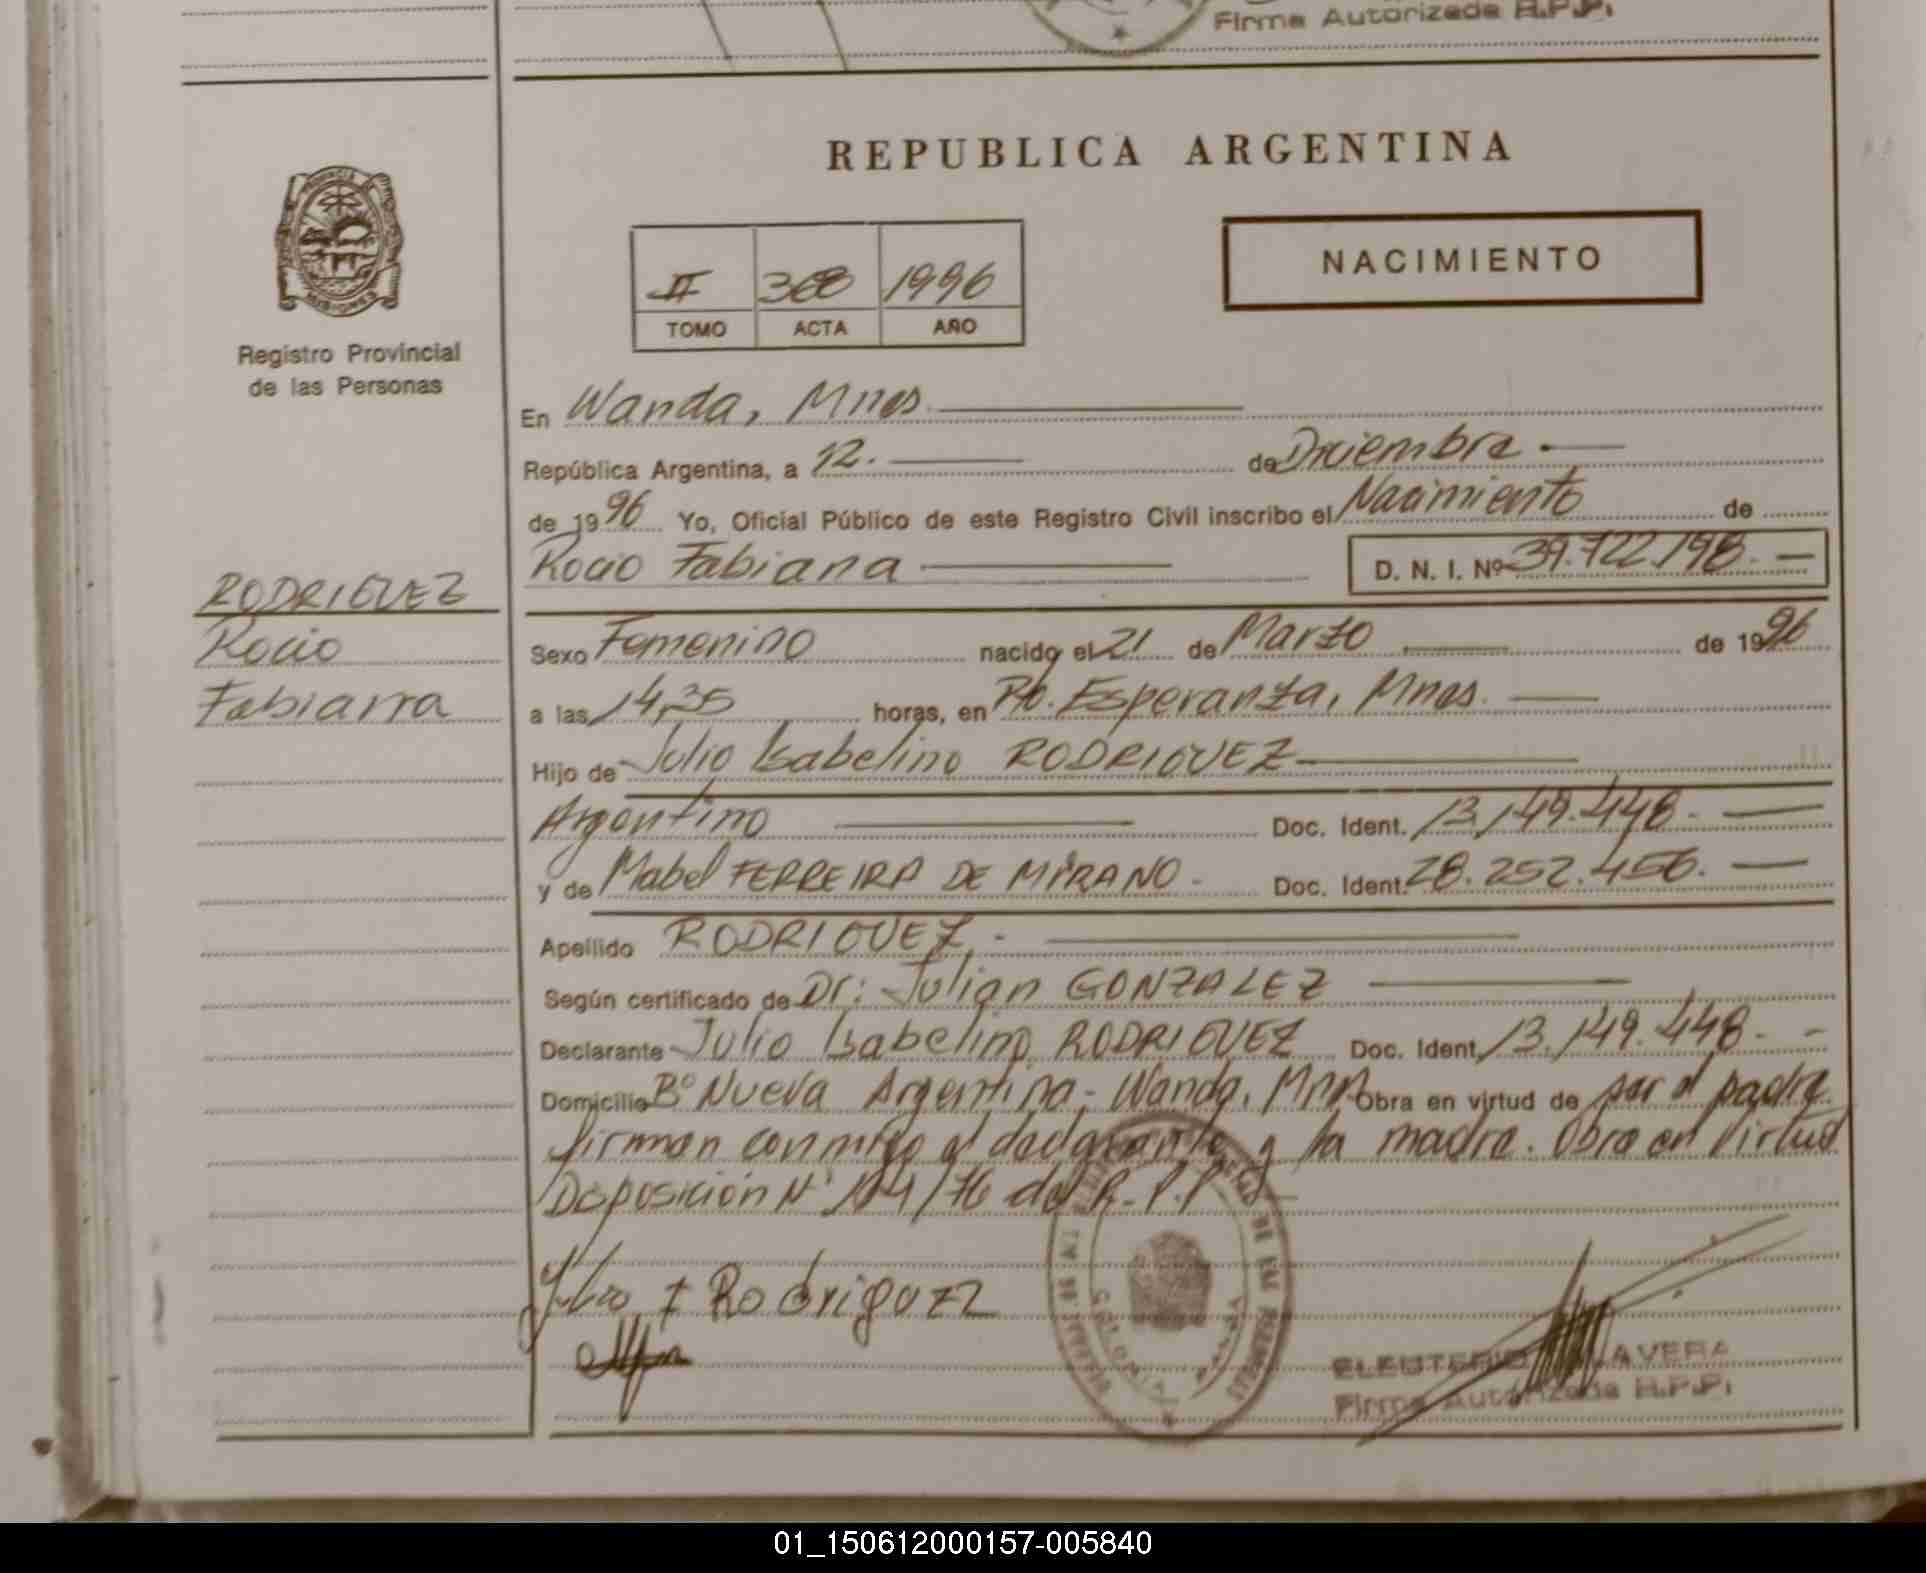 Firma Autorizada R.P.P.
REPUBLICA ARGENTINA
PROVINCIA DE
MISIONES
Registro Provincial
de las Personas
II 368 1996
TOMO ACTA AÑO
NACIMIENTO
En Wanda, Mnes.
República Argentina, a 12. de Diciembre
de 1996 Yo, Oficial Público de este Registro Civil inscribo el Nacimiento de
Rocio Fabiana D. N. I. Nº 39.722.198.
RODRIGUEZ
Rocio
Fabiana
Sexo Femenino nacido el 21 de Marzo de 1996
a las 14,35 horas, en Pto. Esperanza, Mnes.
Hijo de Julio Isabelino RODRIGUEZ
Argentino Doc. Ident. 13.149.448.
y de Mabel FERREIRA DE MIRANO. Doc. Ident. 28.252.456.
Apellido RODRIGUEZ.
Según certificado de Dr: Julian GONZALEZ
Declarante Julio Isabelino RODRIGUEZ Doc. Ident. 13.149.448.
Domicilio Bº Nueva Argentina, Wanda, Mnes. Obra en virtud de ser el padre
firman conmigo el declarante y la madre. Obra en virtud
Disposición Nº 104/76 del R.P.P.
Julio I Rodriguez
ELEUTERIO AVERA
Firma Autorizada R.P.P.
01_150612000157-005840